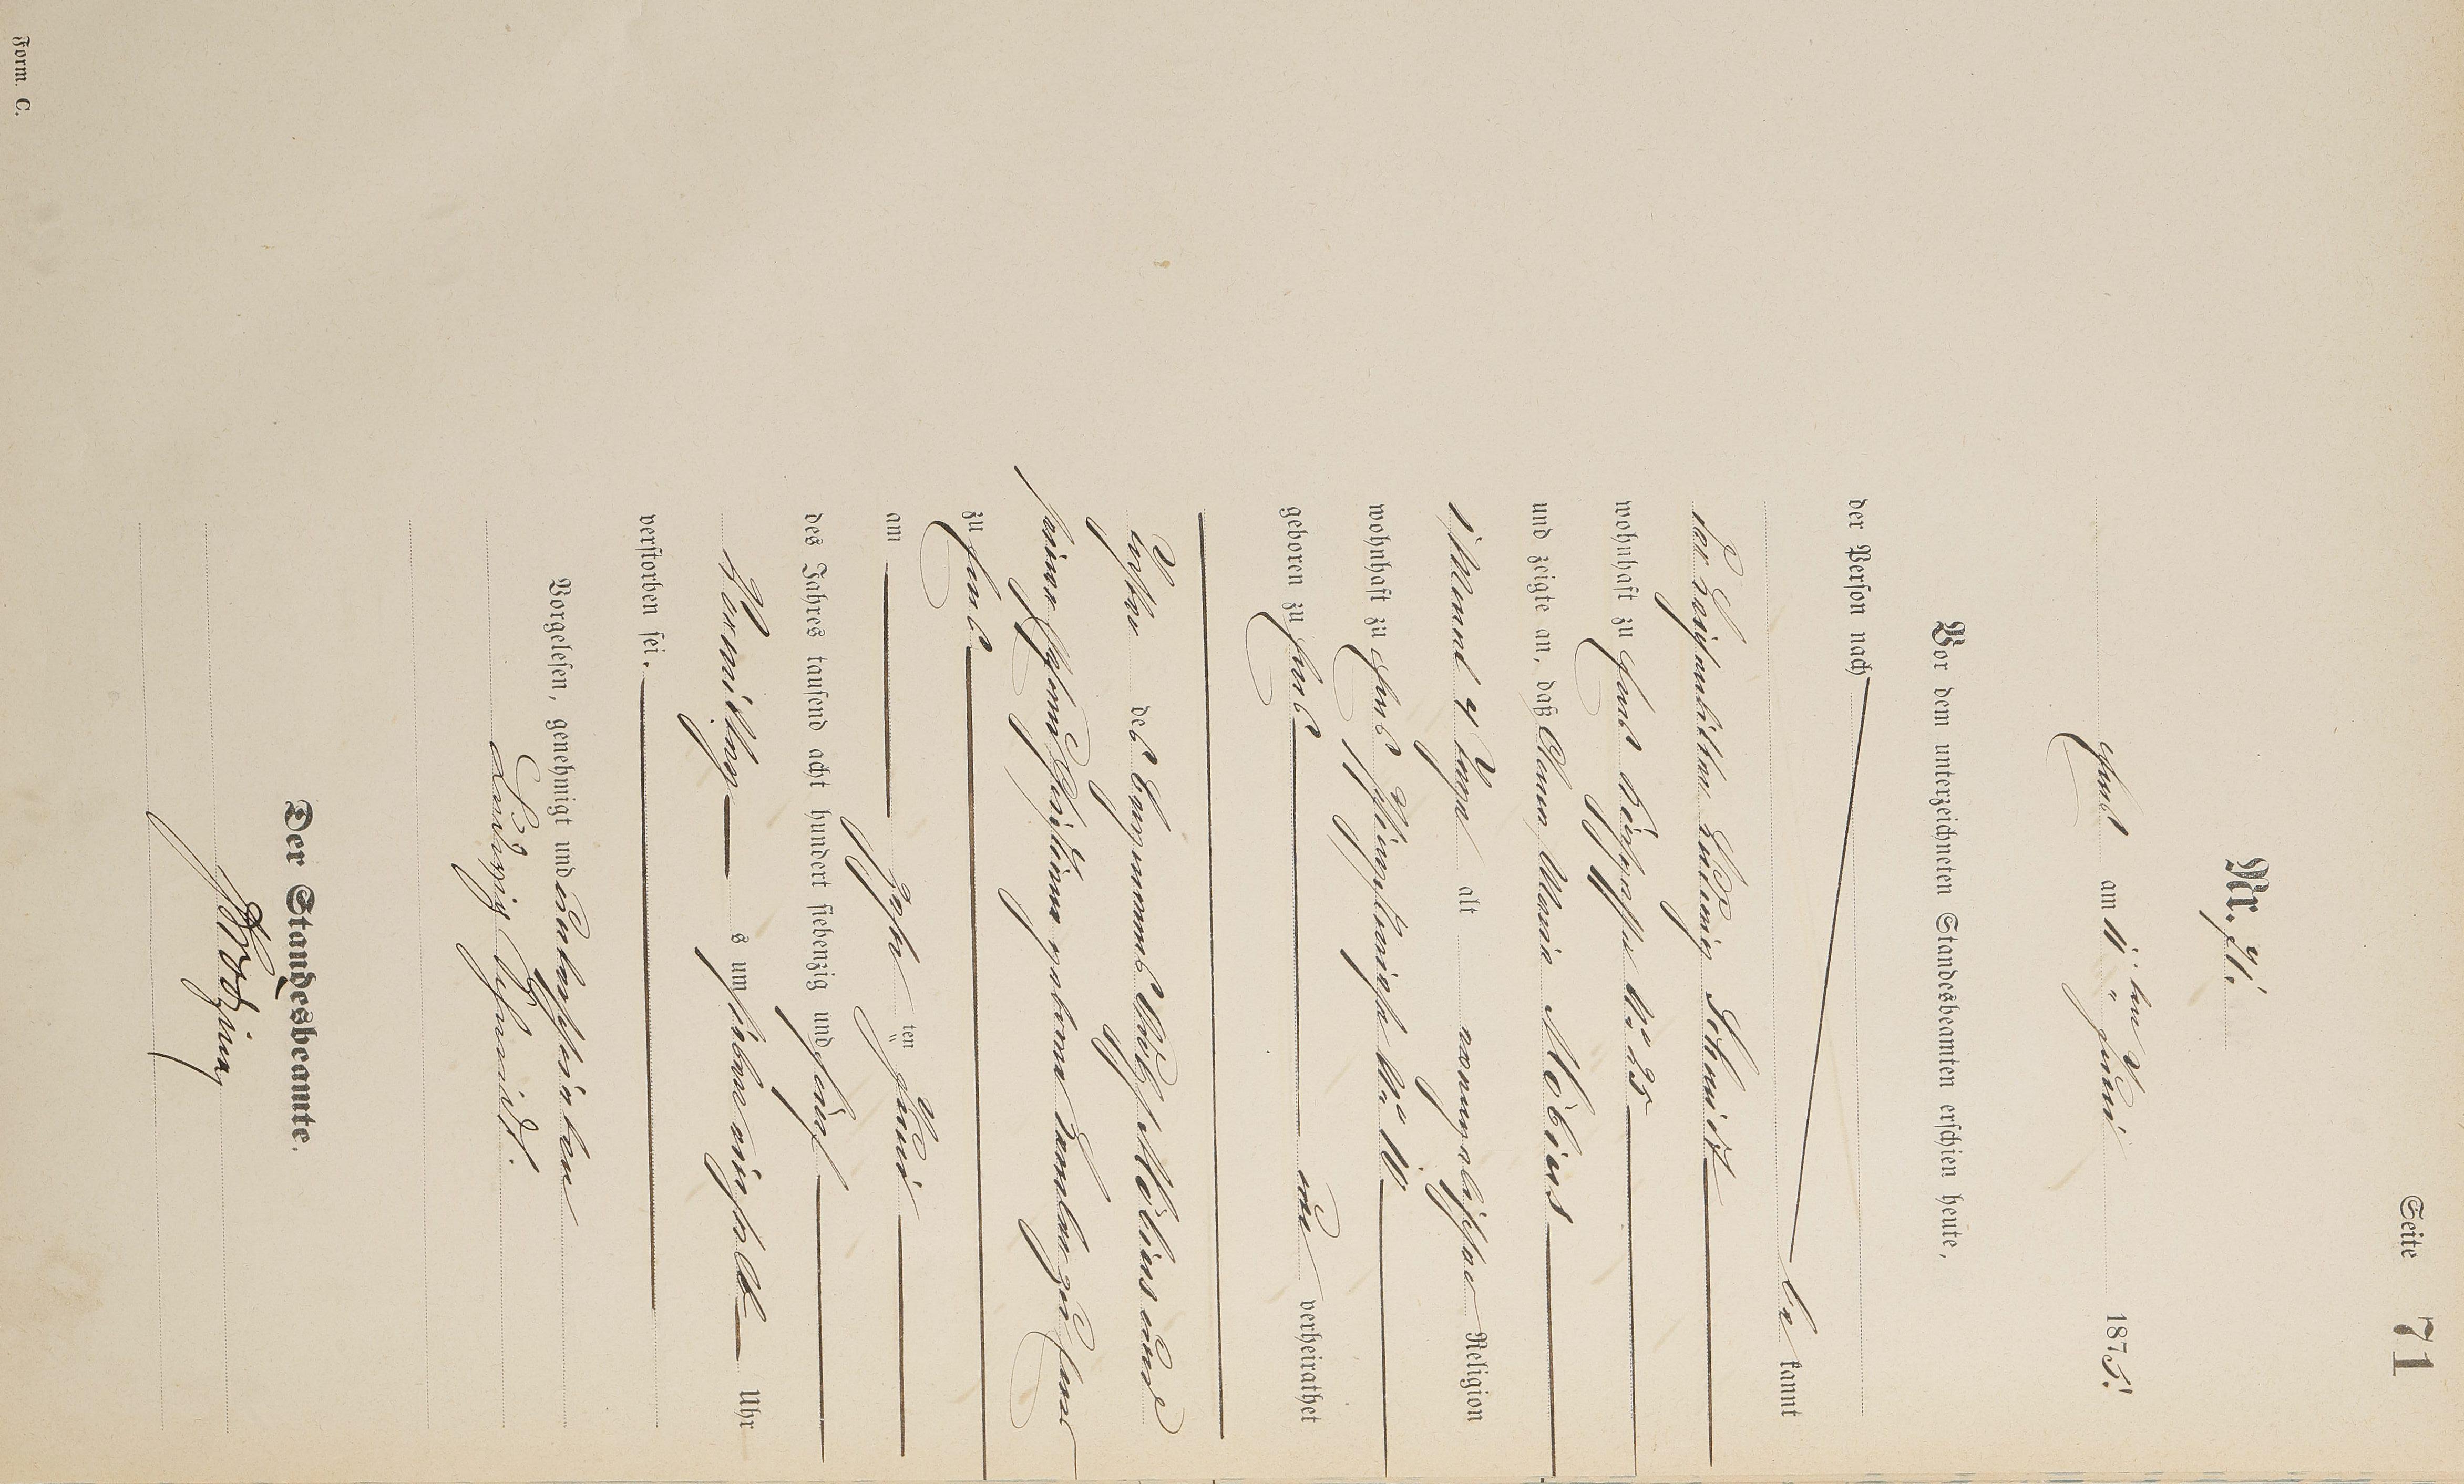 Seite 71
Nr. 71.
am 11ten Juni 1875.
Vor dem unterzeichneten Standesbeamten erschien heute,
der Person nach
be kannt
der Ludwig Schmidt
wohnhaft zu No 25
und zeigte an, daß Anna Maria Möbius
1 Monat 4 Tage alt evangelischer Religion
wohnhaft zu No 11.
geboren zu un verheirathet
Tochter des Möbius und
seiner Ehefrau geborene
zu
am zehn ten Juni
des Jahres tausend acht hundert siebenzig und fünf
Vormittag s um sieben einhalb Uhr
verstorben sei.
Vorgelesen, genehmigt und unterschrieben
Ludwig Schmidt.
Der Standesbeamte.
Form. C.